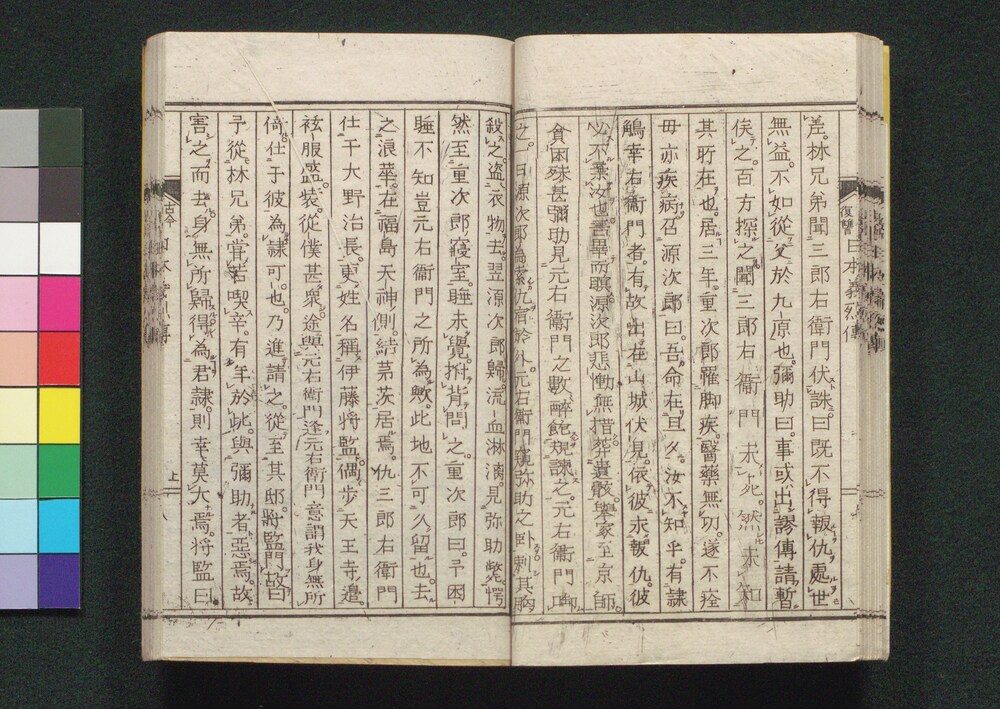 差林兄弟聞三郎右衛門伏誅曰既不得報仇處世
無益不如從父於九原也彌助曰事或出謬傳請暫
俟之百方探之聞三郎右衛門未死然未知
其所在也居三年重次郎罹脚疾醫藥無功遂不痊
毋亦疾病召源次郎曰吾命在旦夕汝不知乎有隷
鵤幸右衛門者有故出在山城伏見依彼求報仇彼
必不棄汝也言畢而瞑源次郎悲慟無措葬遺骸與家至京師
貧困殊甚彌助見元右衛門之數醉飽規諫之元右衛門
之一日源次郎為宿於外元右衛門窺弥助之刺其胸
殺之盗衣物去翌源次郎歸流血淋漓見弥助斃愕
然至重次郎寢室睡未覺拊背問之重次郎曰予困
睡不知豈元右衛門之所為歟此地不可久留也去
之浪華在福島天神側結茅茨居焉仇三郎右衛門
仕于大野治長更姓名稱伊藤將監偶歩天王寺邉
袨服盛装從僕甚衆途與元右衛門逢元右衛門意謂我身無所
倚仕于彼為隷可也乃進請之從至其邸將監問故曰
予從林兄弟甞苦喫辛有年於此與彌助者惡焉故
害之而去身無所歸得為君隷則幸莫大焉將監曰
復讐日本義烈傳
上